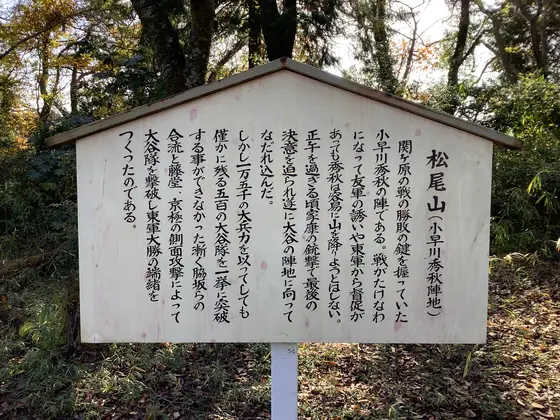 松尾山(小早川秀秋陣地)
関ヶ原の戦の勝敗の鍵を握っていた
小早川秀秋の陣である。戦がたけなわ
になって友軍の誘いや東軍から督促が
あっても秀秋は容易に山を降りようとはしない。
正午を過ぎる頃家康の銃撃で最後の
決意を迫られ遂に大谷の陣地に向って
なだれ込んだ。
しかし一万五千の大兵力を以ってしても
僅かに残る五百の大谷隊を一挙に突破
する事ができなかった漸く脇坂らの
合流と藤堂、京極の側面攻撃によって
大谷隊を撃破し東軍大勝の端緒を
つくったのである。